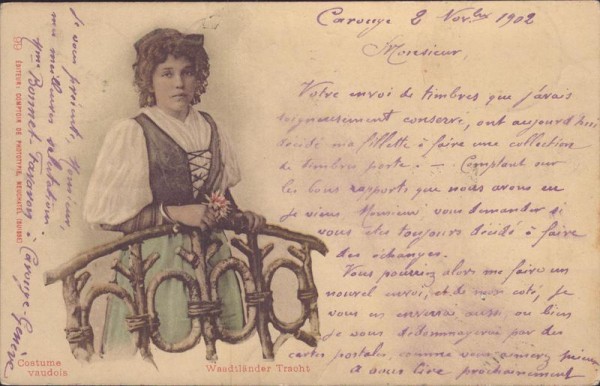 Carouge 2 Nov.bre 1902
Monsieur,
Votre envoi de timbres que j'avais
soigneusement conservé, ont aujourd'hui
décidé ma fillette à faire une collection
de timbres poste. — Comptant sur
les bons rapports que nous avons eu
je viens Monsieur vous demander si
vous êtes toujours décidé à faire
des échanges.
Vous pourriez alors me faire un
nouvel envoi, et de mon coté, je
vous en enverrai aussi, ou bien
je vous dédommagerai par des
cartes postales, comme vous aimerez mieux
à vous lire prochainement
Je vous présente, Monsieur,
mes meilleures salutations.
Mme Bonnet à Carouge Genève
99 EDITEUR: COMPTOIR DE PHOTOTYPIE, NEUCHATEL (SUISSE)
Costume
vaudois
Waadtländer Tracht